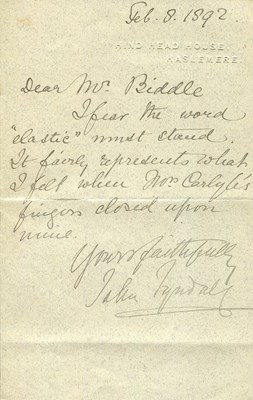 Feb. 8. 1892.
HIND HEAD HOUSE,
HASLEMERE.
Dear Mr. Biddle
I fear the word
"elastic" must stand.
It fairly represents what
I felt when Mrs Carlyle's
fingers closed upon
mine.
Yours faithfully
John Tyndall